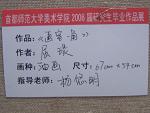 首都师范大学美术学院2006届研究生毕业作品展
作品:《画室一角》
作者:屈琰
画种:油画 尺寸:67cm×54cm
指导老师:杨悠明